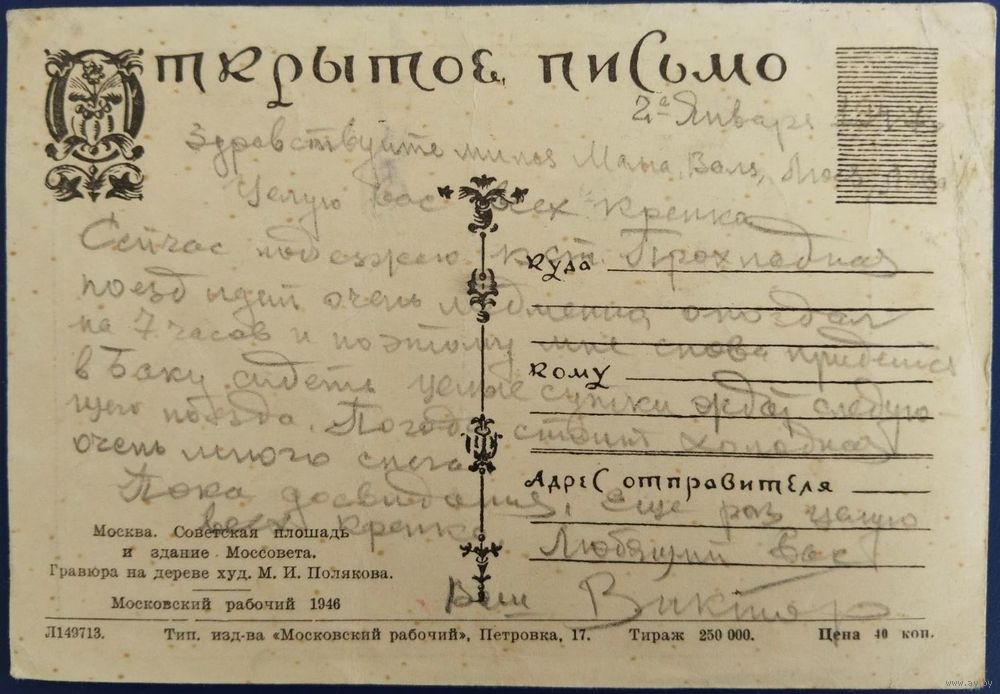 Открытое письмо
2а Января
Здравствуйте милая Мама, Валя,
Целую вас всех крепка
Сейчас подезжаю к ст. Прохладная
поезд идет очень медленна опоздал
на 7 часов и поэтому мне снова придется
в Баку сидеть целые сутки ждат следую-
щего поезда. Погода стоит холодная
очень много снега
Пока досвидания, еще раз целую
всех крепка
Любящий вас
Ваш Виктор
Куда
Кому
Адрес отправителя
Москва. Советская площадь
и здание Моссовета.
Гравюра на дереве худ. М. И. Полякова.
Московский рабочий 1946
Л149713. Тип. изд-ва «Московский рабочий», Петровка, 17. Тираж 250 000. Цена 40 коп.
www.ay.by